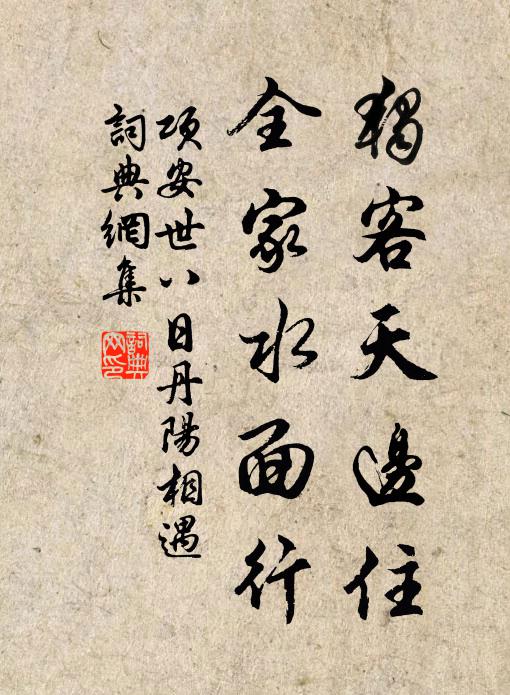 獨客天邊住
全家水面行
項安世八日丹陽相遇
詞典網集
詞典網印